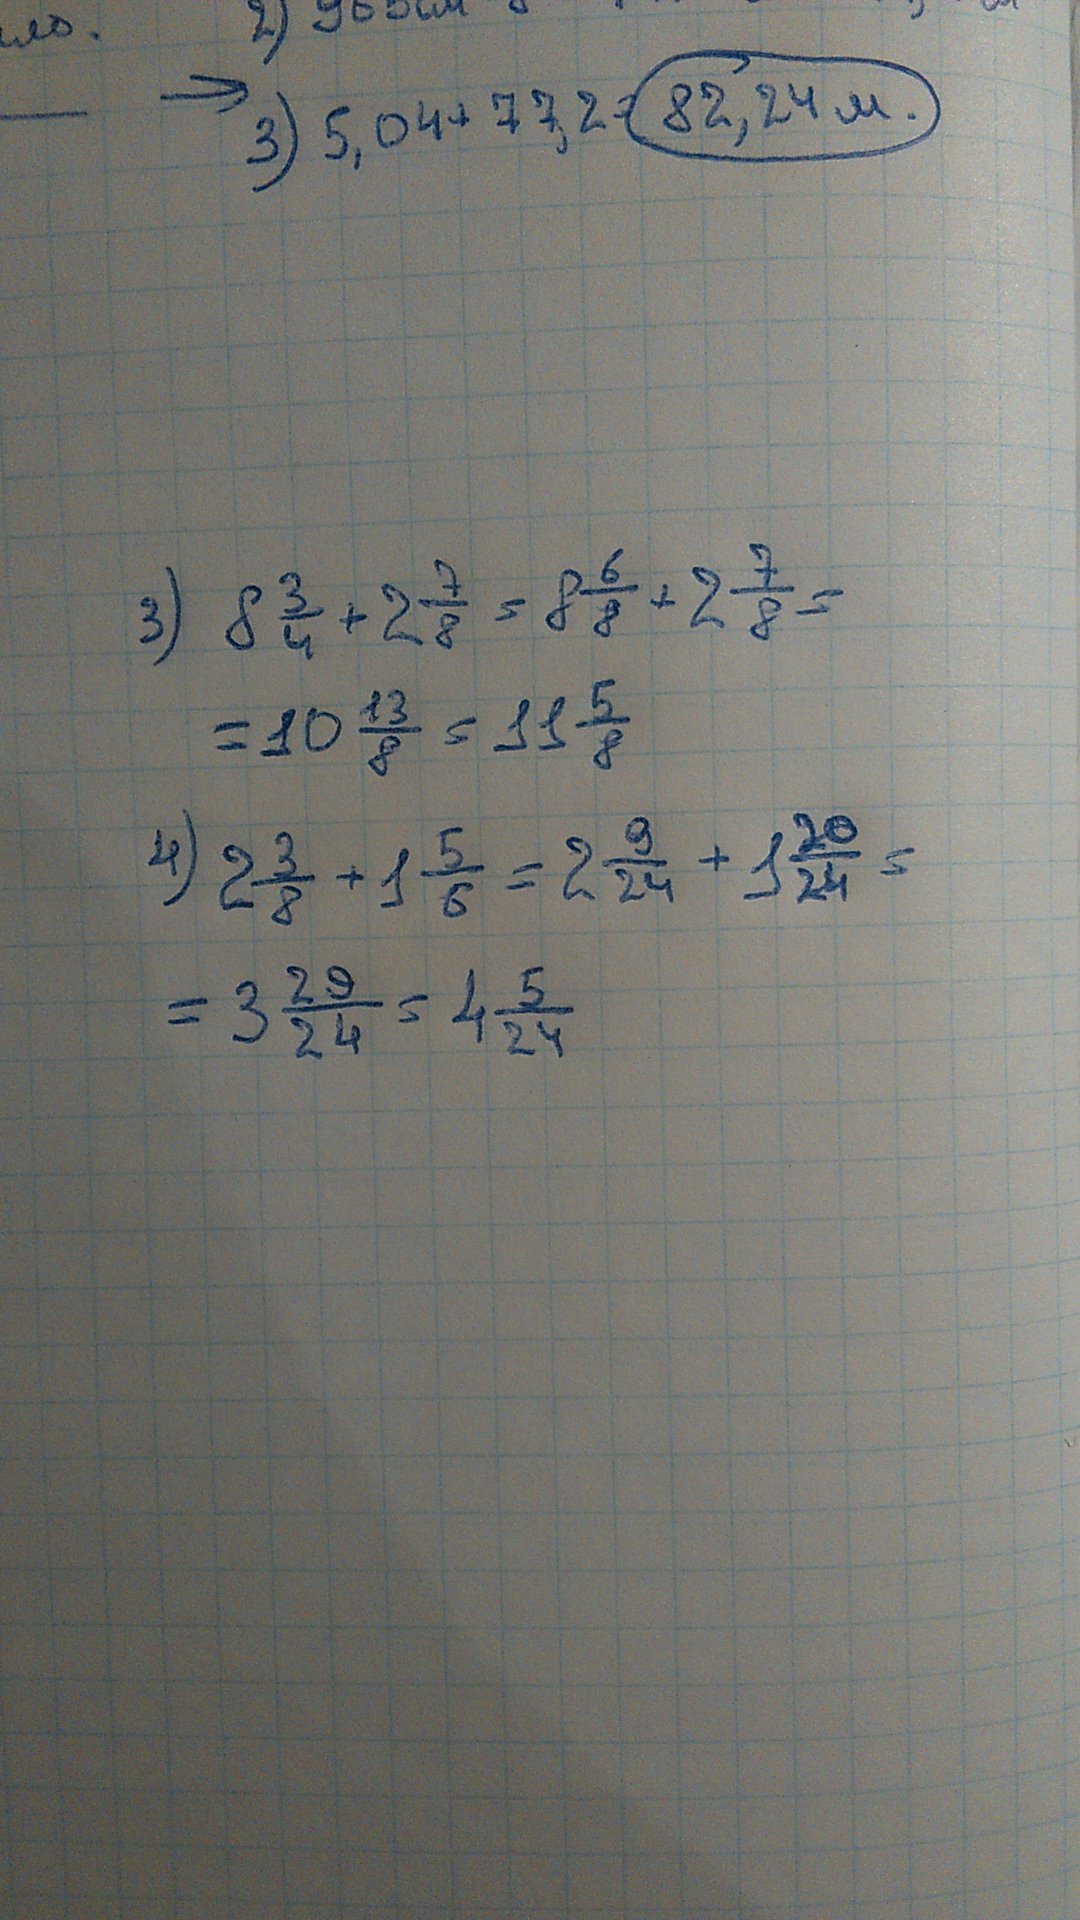 2)
3) 5,04+77,2=82,24 м.
3) 8 3/4 + 2 7/8 = 8 6/8 + 2 7/8 =
= 10 13/8 = 11 5/8
4) 2 3/8 + 1 5/6 = 2 9/24 + 1 20/24 =
= 3 29/24 = 4 5/24